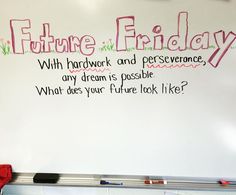 Future Friday
With hardwork and perseverance,
any dream is possible.
What does your future look like?